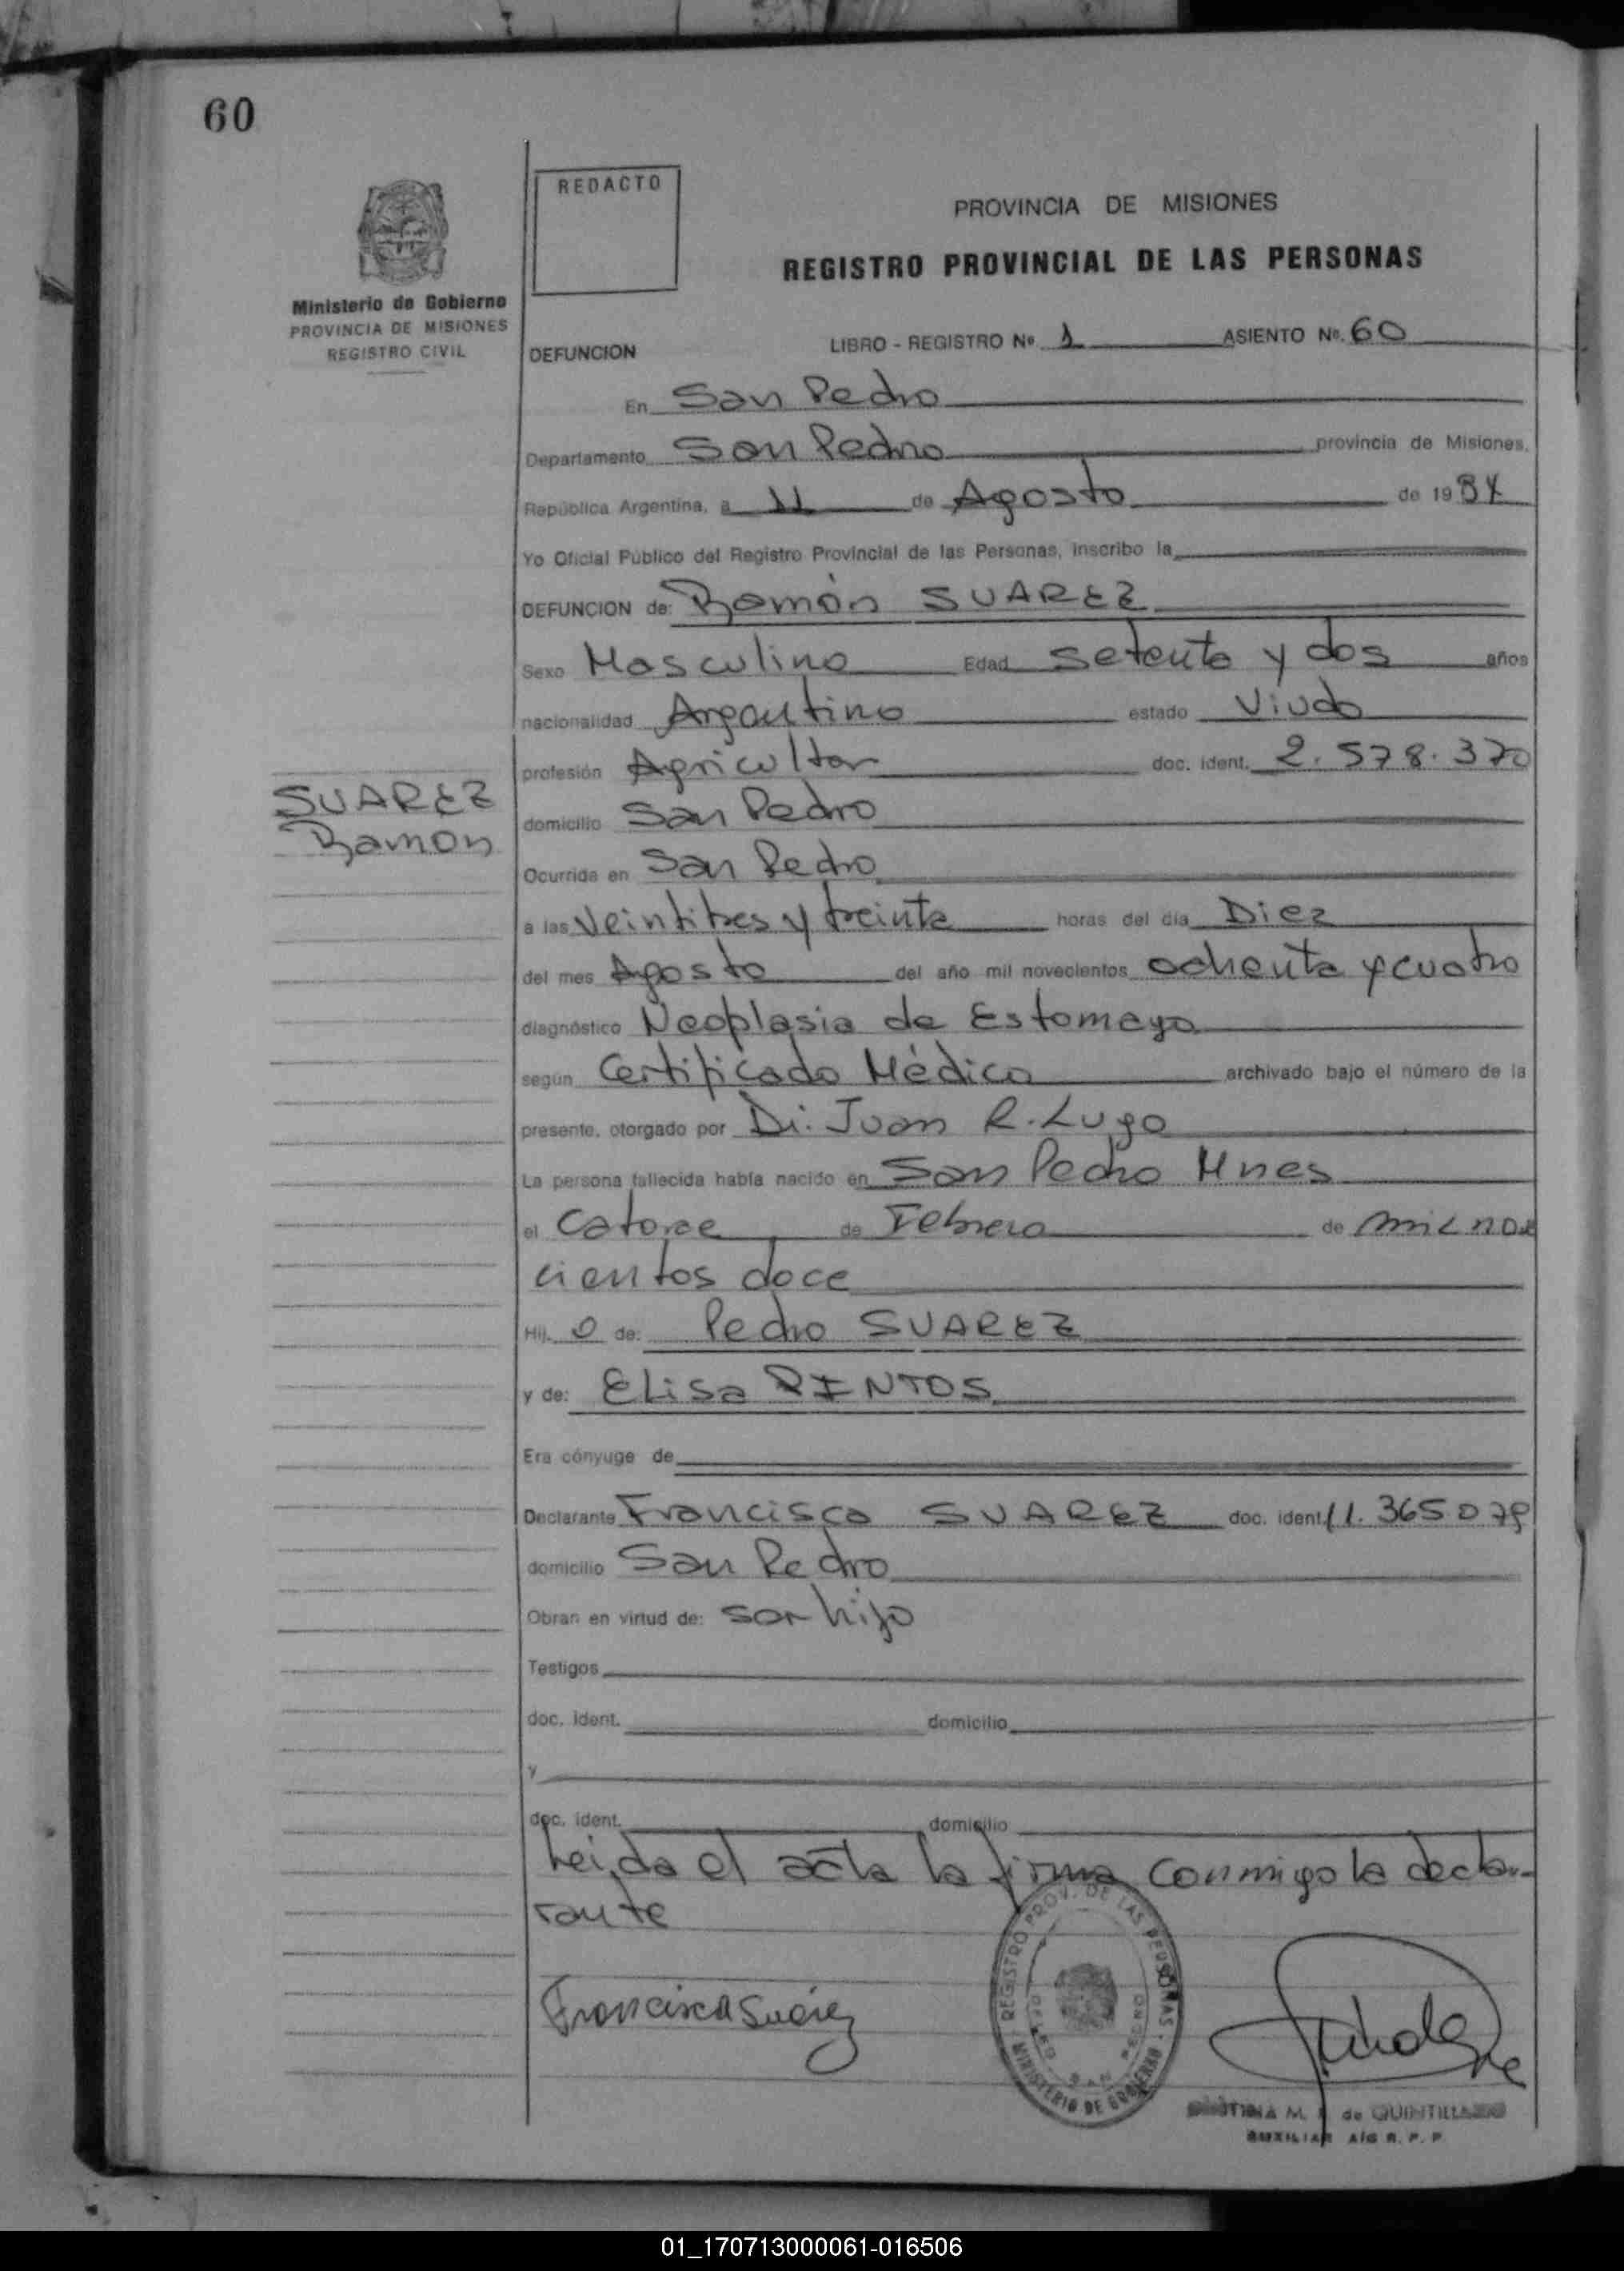 60
REDACTO
PROVINCIA DE MISIONES
REGISTRO PROVINCIAL DE LAS PERSONAS
Ministerio de Gobierno
PROVINCIA DE MISIONES
REGISTRO CIVIL
DEFUNCION LIBRO - REGISTRO Nº 1 ASIENTO Nº. 60
En San Pedro
Departamento San Pedro provincia de Misiones,
República Argentina, a 11 de Agosto de 1984
Yo Oficial Público del Registro Provincial de las Personas, inscribo la
DEFUNCION de: Ramón SUAREZ
Sexo Masculino Edad setenta y dos años
nacionalidad Argentino estado Viudo
profesión Agricultor doc. ident. 2.578.370
SUAREZ
Ramon
domicilio San Pedro
Ocurrida en San Pedro
a las Veintitres y treinta horas del día Diez
del mes Agosto del año mil novecientos ochenta y cuatro
diagnóstico Neoplasia de Estomago
según Certificado Médico archivado bajo el número de la
presente, otorgado por Dr. Juan R. Lugo
La persona fallecida había nacido en San Pedro Mnes
el Catorce de Febrero de mil nove
cientos doce
Hij o de: Pedro SUAREZ
y de: Elisa PINTOS
Era cónyuge de
Declarante Francisca SUAREZ doc. ident. 11.365.079
domicilio San Pedro
Obran en virtud de: ser hijo
Testigos
doc. ident. domicilio
y
doc. ident. domicilio
Leida el acta la firma conmigo la decla-
rante
Francisca Suárez
REGISTRO PROV. DE LAS PERSONAS
MINISTERIO DE GOBIERNO
SAN PEDRO
M. de QUINTILLANO
AUXILIAR A/G R. P. P.
01_170713000061-016506